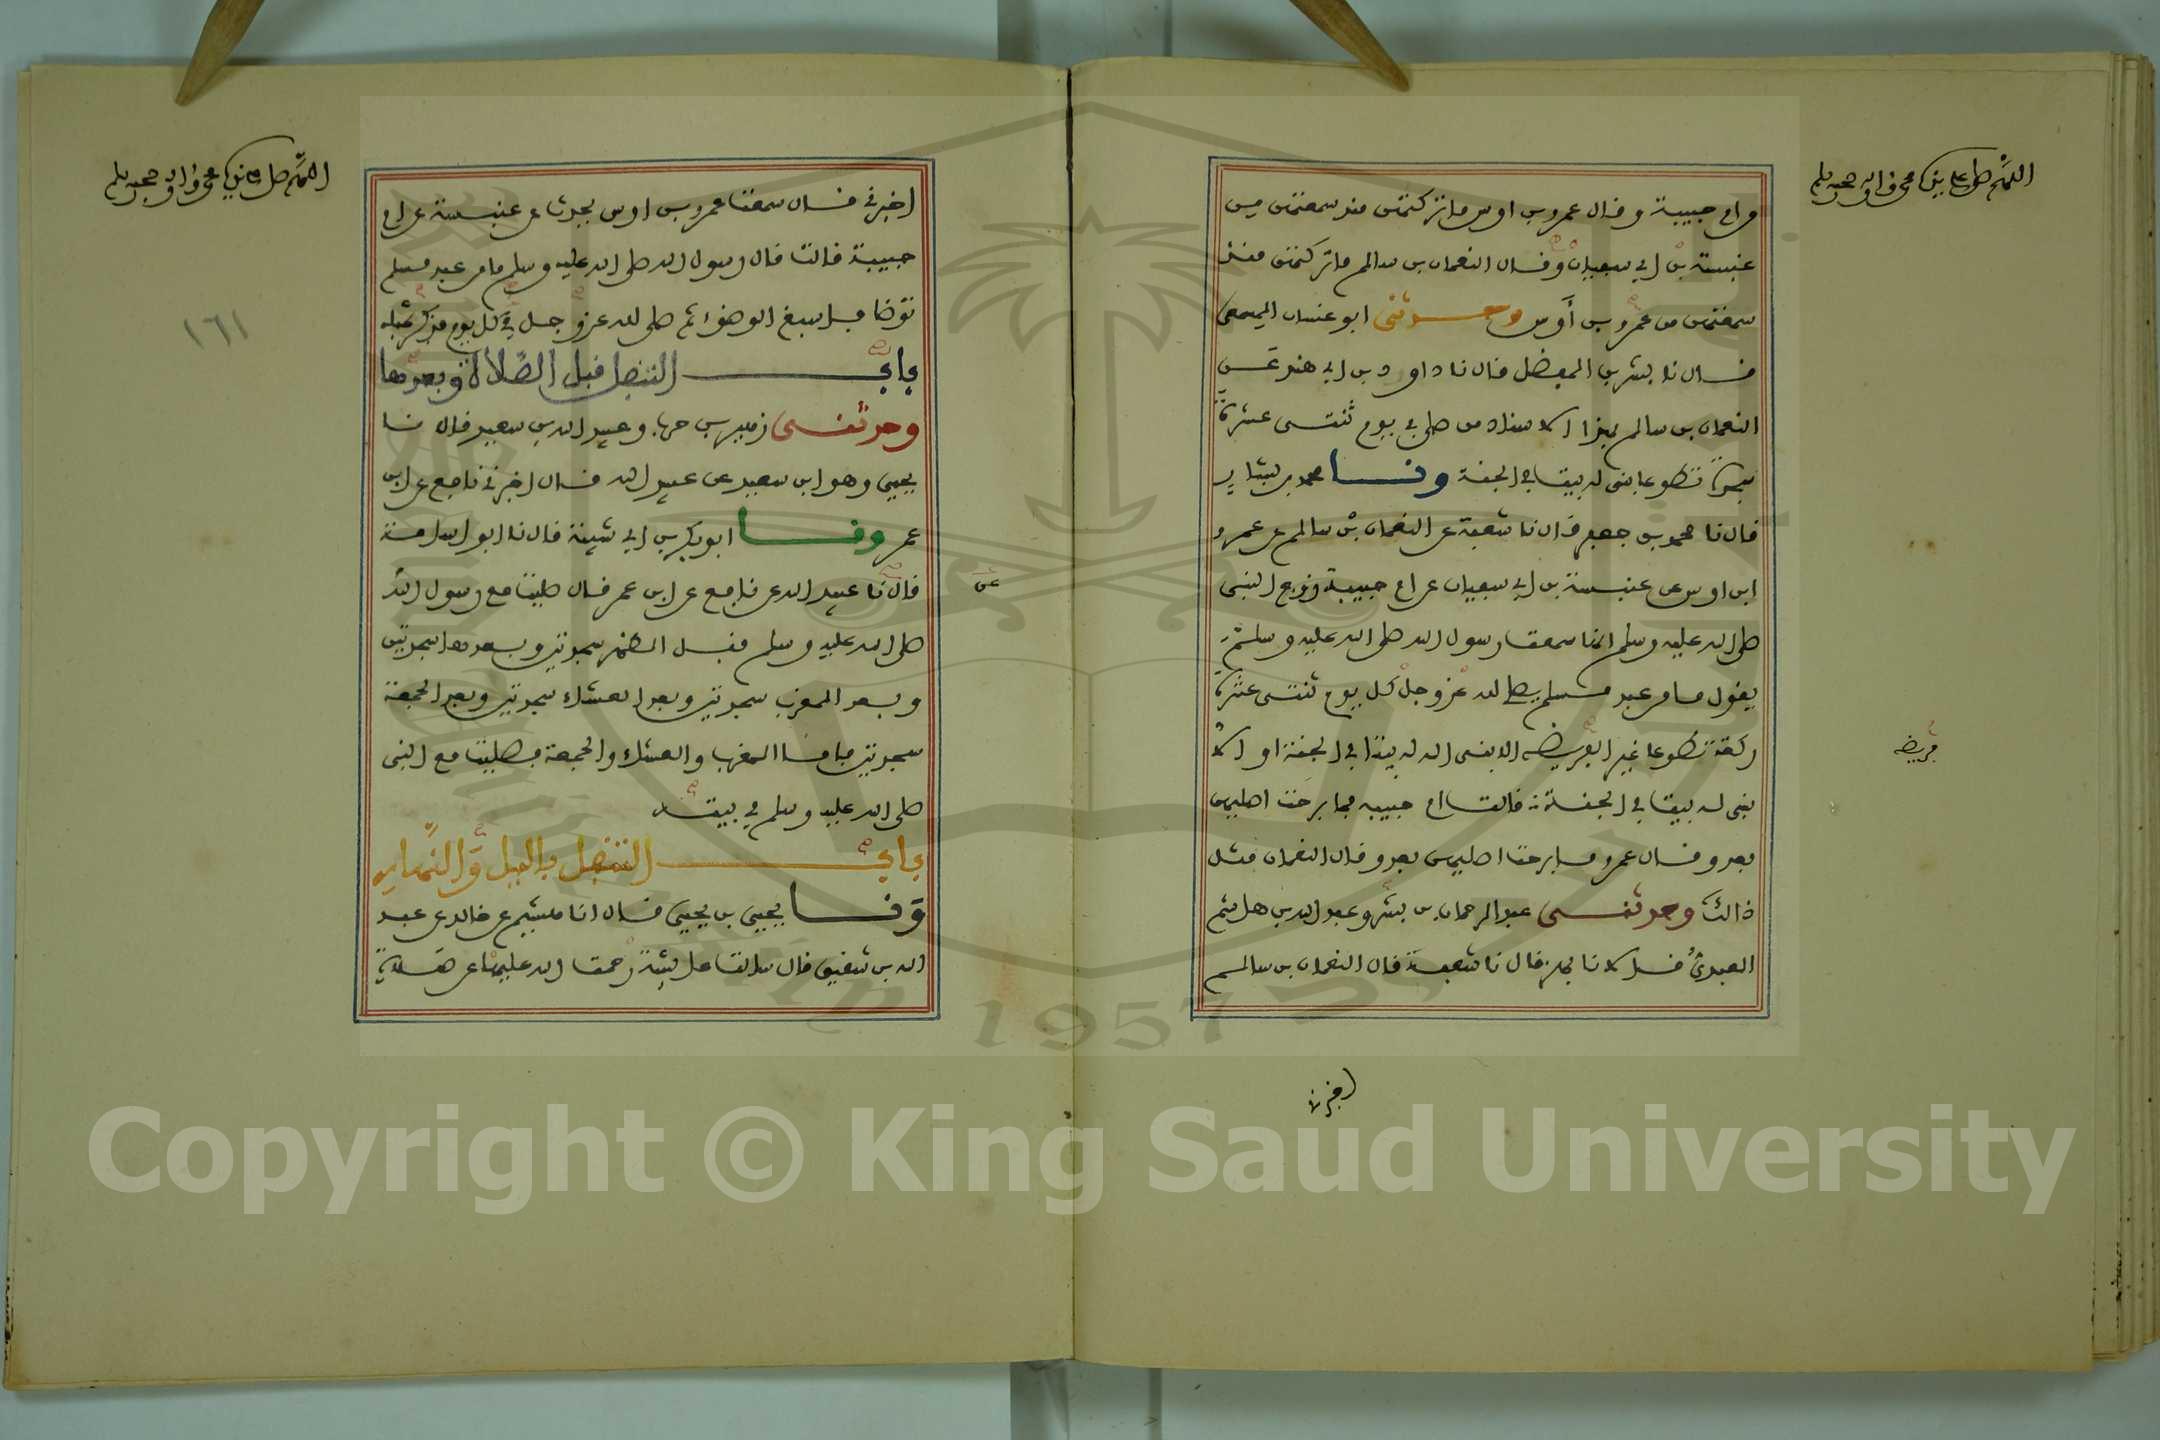 اللهم صل على نبيك محمد وآله وصحبه وسلم
وام حبيبة وقال عمرو بن اوس ما تركتهن منذ سمعتهن من
عنبسة بن ابي سفيان وقال النعمان بن سالم ما تركتهن منذ
سمعتهن من عمرو بن أوس وحدثني ابو غسان المسمعي
قال نا بشر بن المفضل قال نا داود بن ابي هند عن
النعمان بن سالم بهذا الاسناد من صلى في يوم ثنتى عشرة
سجدة تطوعا بنى له بيتا في الجنة ونا محمد بن بشار
قال نا محمد بن جعفر قال نا شعبة عن النعمان بن سالم عن عمرو
ابن اوس عن عنبسة بن ابي سفيان عن ام حبيبة زوج النبي
صلى الله عليه وسلم انها سمعت رسول الله صلى الله عليه وسلم
يقول ما من عبد مسلم يصلي لله عز وجل كل يوم ثنتى عشرة
ركعة تطوعا غير الفريضة الا بنى الله له بيتا في الجنة او الا
بني له بيتا في الجنة قالت ام حبيبه فما برحت اصليهن
بعد وقال عمرو ما برحت اصليهن بعد وقال النعمان مثل
ذالك وحدثني عبد الرحمان بن بشر وعبد الله بن هاشم
العبدي قالا نا بهز قال نا شعبة قال النعمان بن سالم
فريضة
اخبرني
اللهم صل على نبيك محمد وآله وصحبه وسلم
١٦١
اخبرني قال سمعت عمرو بن اوس يحدث عن عنبسة عن ام
حبيبة قالت قال رسول الله صلى الله عليه وسلم ما من عبد مسلم
توضا فاسبغ الوضوء ثم صلى لله عز وجل في كل يوم فذكر مثله
باب التنفل قبل الصلاة وبعدها
وحدثني زهير بن حرب وعبيد الله بن سعيد قال نا
يحيى وهو ابن سعيد عن عبيد الله قال اخبرني نافع عن ابن
عمر ونا ابو بكر بن ابي شيبة قال نا ابو اسامة
قال نا عبيد الله عن نافع عن ابن عمر قال صليت مع رسول الله
صلى الله عليه وسلم قبل الظهر سجدتين وبعدها سجدتين
وبعد المغرب سجدتين وبعد العشاء سجدتين وبعد الجمعة
سجدتين فاما المغرب والعشاء والجمعة فصليت مع النبي
صلى الله عليه وسلم في بيته
باب التنفل بالليل والنهار
ونا يحيى بن يحيى قال انا هشيم عن خالد عن عبد
الله بن شقيق قال سالت عايشة رحمت الله عليها عن صلاة
عن
Copyright © King Saud University
1957